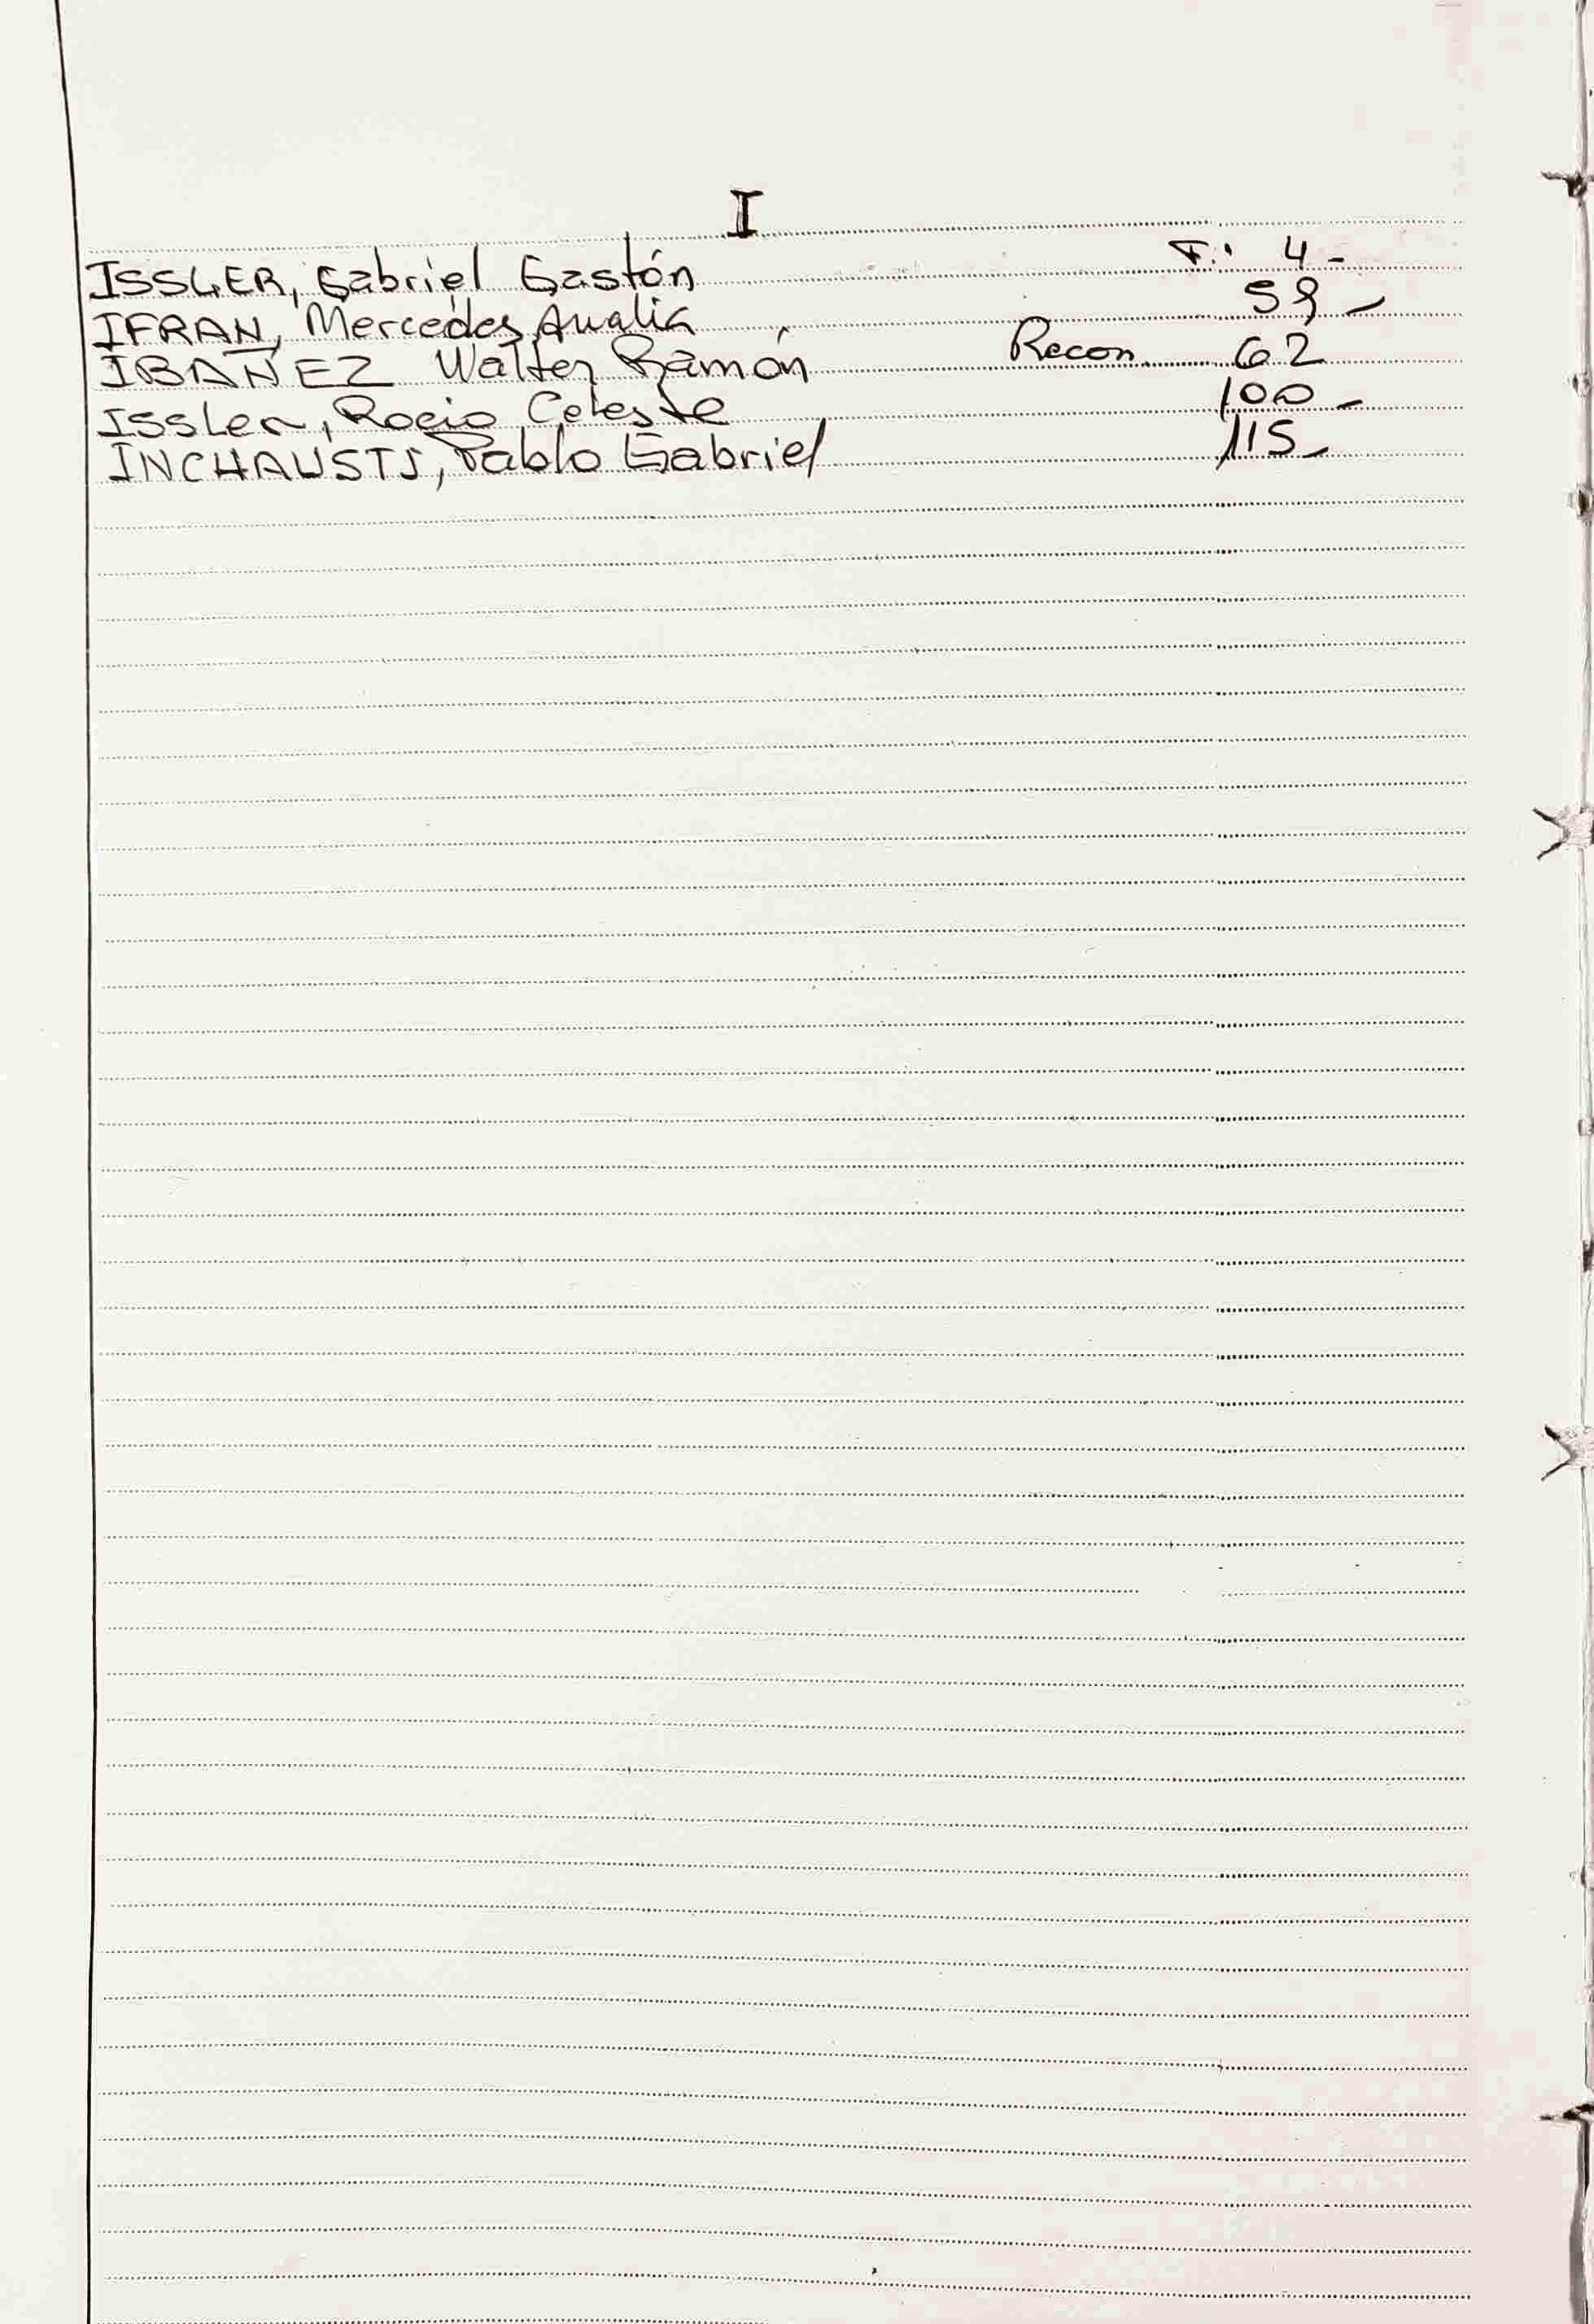 I
ISSLER, Gabriel Gastón F.: 4-
IFRAN, Mercedes Analia 59-
IBAÑEZ Walter Ramón Recon 62
Issler, Rocio Celeste 100-
INCHAUSTI, Pablo Gabriel 115-